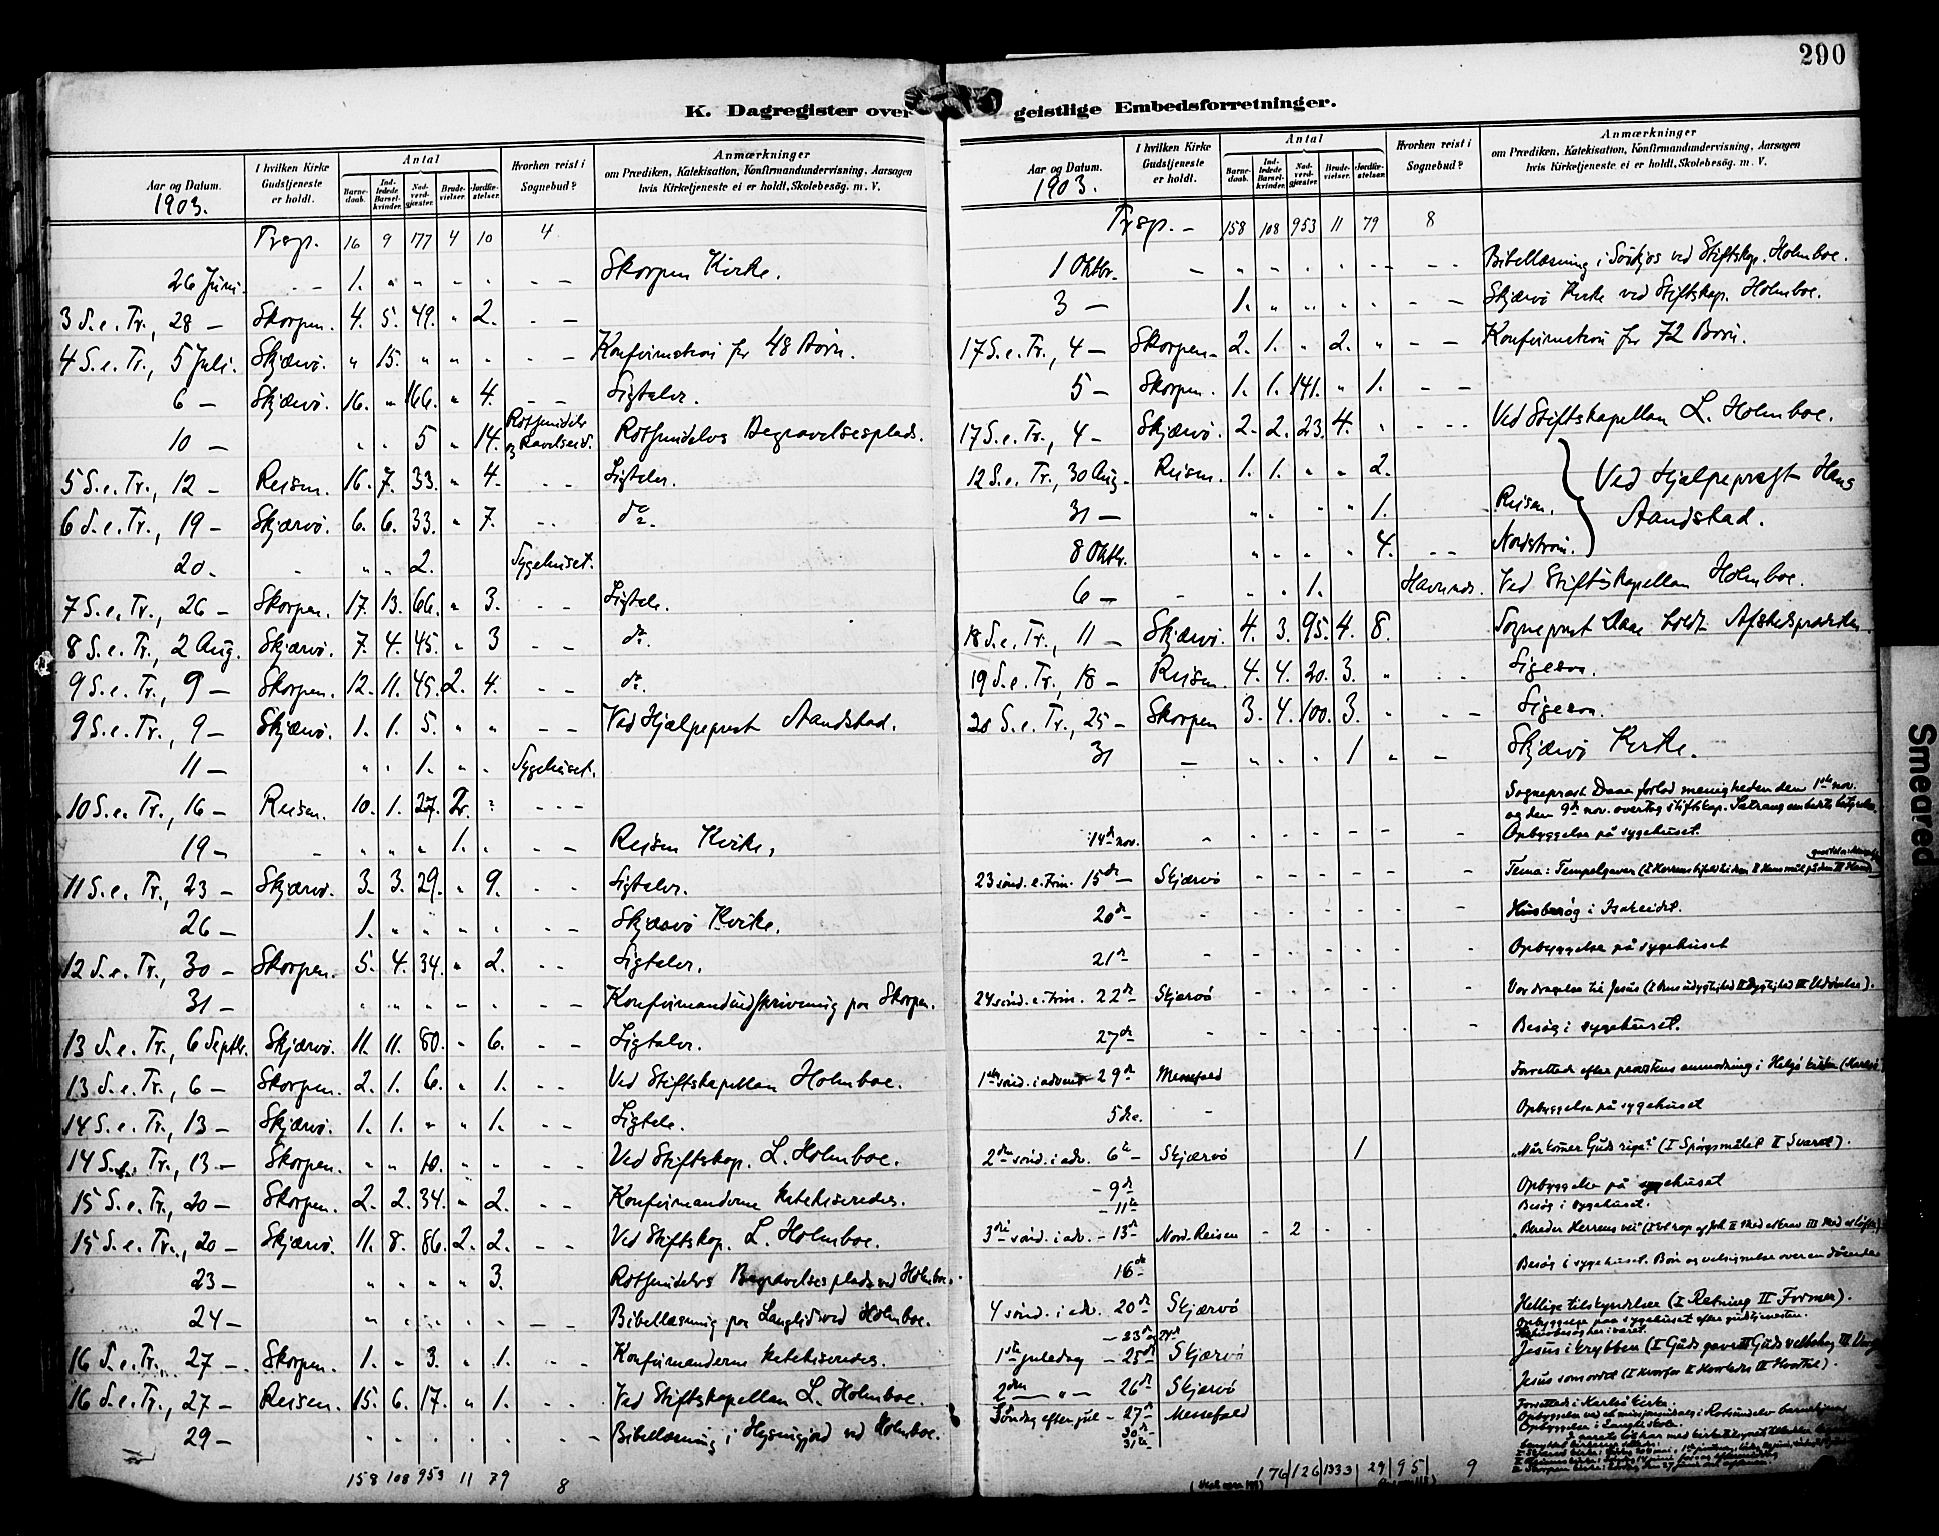 290
K. Dagregister over geistlige Embedsforretninger.
Aar og Datum. 1903.
I hvilken Kirke Gudstjeneste er holdt.
Antal
Barnedaab.
Indledede Barselkvinder.
Nadverdgjæster.
Brudevielser.
Jordfæstelser.
Hvorhen reist i Sognebud?
Anmærkninger
om Prædiken, Katekisation, Konfirmandundervisning, Aarsagen
hvis Kirketjeneste ei er holdt, Skolebesøg. m. V.
Trsp. 16 9 177 4 10 4
26 Juni. - - 1. " " - - - - Skorpen Kirke.
3 S. e. Tr., 28 - Skorpen. 4. 5. 49. " 2. - -
4 S. e. Tr., 5 Juli. Skjærvö. " 15. " " " - - Konfirmation for 48 Börn.
6 - Skjærvö. 16. " 166. " 4. - - Ligtaler.
10 - " " 5 " 14. Rotsundelv og Ravelseid. Rotsundelvs Begravelsesplads.
5 S. e. Tr., 12 - Reisen. 16. 7. 33. " 4. - - Ligtaler.
6 S. e. Tr., 19 - Skjærvö. 6. 6. 33. " 7. - - do.
20. - " " 2. Sygehuset.
7 S. e. Tr., 26 - Skorpen. 17. 13. 66. " 3. - - Ligtale.
8 S. e. Tr., 2 Aug. Skjærvö. 7. 4. 45. " 3 - - do.
9 S. e. Tr., 9 - Skorpen. 12. 11. 45. 2. 4. - - do.
9 S. e. Tr., 9 - Skjærvö. 1. 1. 5. " " - - Ved Hjælpeprest Aandstad.
11 - " " 1. " " Sygehuset.
10 S. e. Tr., 16 - Reisen. 10. 1. 27. 2. " - - -
19 - - " " " 1. " - - Reisen Kirke.
11 S. e. Tr., 23 - Skjærvö. 3. 3. 29. " 9. - - Ligtaler.
26 - 1. " " " " - - Skjærvö Kirke.
12 S. e. Tr., 30 - Skorpen. 5. 4. 34. " 2. - - Ligtaler.
31 - " " " " " - - Konfirmandindskrivning paa Skorpen.
13 S. e. Tr., 6 Septbr. Skjærvö. 11. 11. 80. - 6. - - Ligtaler.
13 S. e. Tr., 6 - Skorpen. 2. 1. 6. " 1. - - Ved Stiftskapellan Holmboe.
14 S. e. Tr., 13 - Skjærvö. 1. 1. " " 1. - - Ligtale.
14 S. e. Tr., 13 - Skorpen. " " 10. " " - - Ved Stiftskap. L. Holmboe.
15 S. e. Tr., 20 - Skorpen. 2. 2. 34. " 2. - - Konfirmanderne katekiseredes.
15 S. e. Tr., 20 - Skjærvö. 11. 8. 86. 2. 2. - - Ved Stiftskap. L. Holmboe.
23 - " " " " 3. Rotsundelvs Begravelsesplads ved Holmboe.
24 - " " " " " - - Bibellæsning paa Langslid ved Holmboe.
16 S. e. Tr., 27 - Skorpen. 1. " 3. " 1. - - Konfirmanderne katekiseredes.
16 S. e. Tr., 27 - Reisen. 15. 6. 17. " 1. - - Ved Stiftskapellan L. Holmboe.
29 - " " " " " - - Bibellæsning i ved Holmboe.
158 108 953 11 79 8
Aar og Datum. 1903.
I hvilken Kirke Gudstjeneste er holdt.
Antal
Barnedaab.
Indledede Barselkvinder.
Nadverdgjæster.
Brudevielser.
Jordfæstelser.
Hvorhen reist i Sognebud?
Anmærkninger
om Prædiken, Katekisation, Konfirmandundervisning, Aarsagen
hvis Kirketjeneste ei er holdt, Skolebesøg. m. V.
Trsp. - 158 108 953 11 79 8
1 Oktbr. - " " " " - - - Bibellæsning i Sörkjos ved Stiftskap. Holmboe.
3 - 1. " " " " - - Skjærvö Kirke ved Stiftskap. Holmboe.
17 S. e. Tr., 4 - Skorpen - 2. 1. " 2. " - - Konfirmation for 72 Born.
5 - Skorpen. 1. 1. 141. " 1. - -
17 S. e. Tr., 4 - Skjærvö. 2. 2. 23. 4. " - - - Ved Stiftskapellan L. Holmboe.
12 S. e. Tr., 30 Aug. Reisen. 1. 1. " " 2.
31 - " " " " 1. Reisen. Ved Hjælpeprest Hans Aandstad.
8 Oktbr. " " " " 4. - - Nordstrøm.
6 - - " " 1. Havnnes. Ved Stiftskapellan Holmboe.
18 S. e. Tr., 11 - Skjærvö. 4. 3. 95. 4. 8. Sogneprest Daae holdt Afskedsprædiken.
19 S. e. Tr., 18 - Reisen. 4. 4. 20. 3. " - - Ligesaa.
20 S. e. Tr., 25 - Skorpen 3. 4. 100. 3. " - - Ligesaa.
31 - " " " 1 " - Skjærvö Kirke.
Sogneprest Daae forlod menigheden den 1ste nov.
og den 9de nov. overtog stiftskap. embedets betjening
14de nov. Opbyggelse på sygehuset.
23 sönd. e. Trin. 15de - Skjærvö Tema: Tempelgaver
20de - Husbesøg i Isakeidet.
21de Opbyggelse på sygehuset
24 sönd. e. Trin. 22de Skjærvö Vor dragelse til Jesus
27de Besøg i sygehuset.
1ste sönd. i advent 29de Messefald Forrettede efter provstens anmodning i Helgö kirke
5 dec. Opbyggelse på sygehuset
2den sönd. i adv. 6te Skjærvö 1 "Når kommer Guds rige?" (I Spörgsmålet II Svaret).
- 9de Opbyggelse på sygehuset
- 11te Besøg i sygehuset.
3die sönd. i adv. - 13de Nord. Reisen - 2 - - "Bereder Herrens vei"
16de Besøg i sygehuset. Bön og velsignelse over en döende
4 sönd. i adv. 20de Skjærvö Hellige tilskyndelser (I Retning II Former).
Opbyggelse paa sygehuset efter gudstjenesten.
- 23de og 24de
1ste juledag - 25de Skjærvö Jesus i krybben
2den - " - 26de Skjærvö Jesus som ordet (I Hvorfor II Hvorledes III Hvortil).
Söndag efter jul - 27de Messefald Forrettede i Karlsö kirke.
30te
31te
176 126 1333 29 95 9